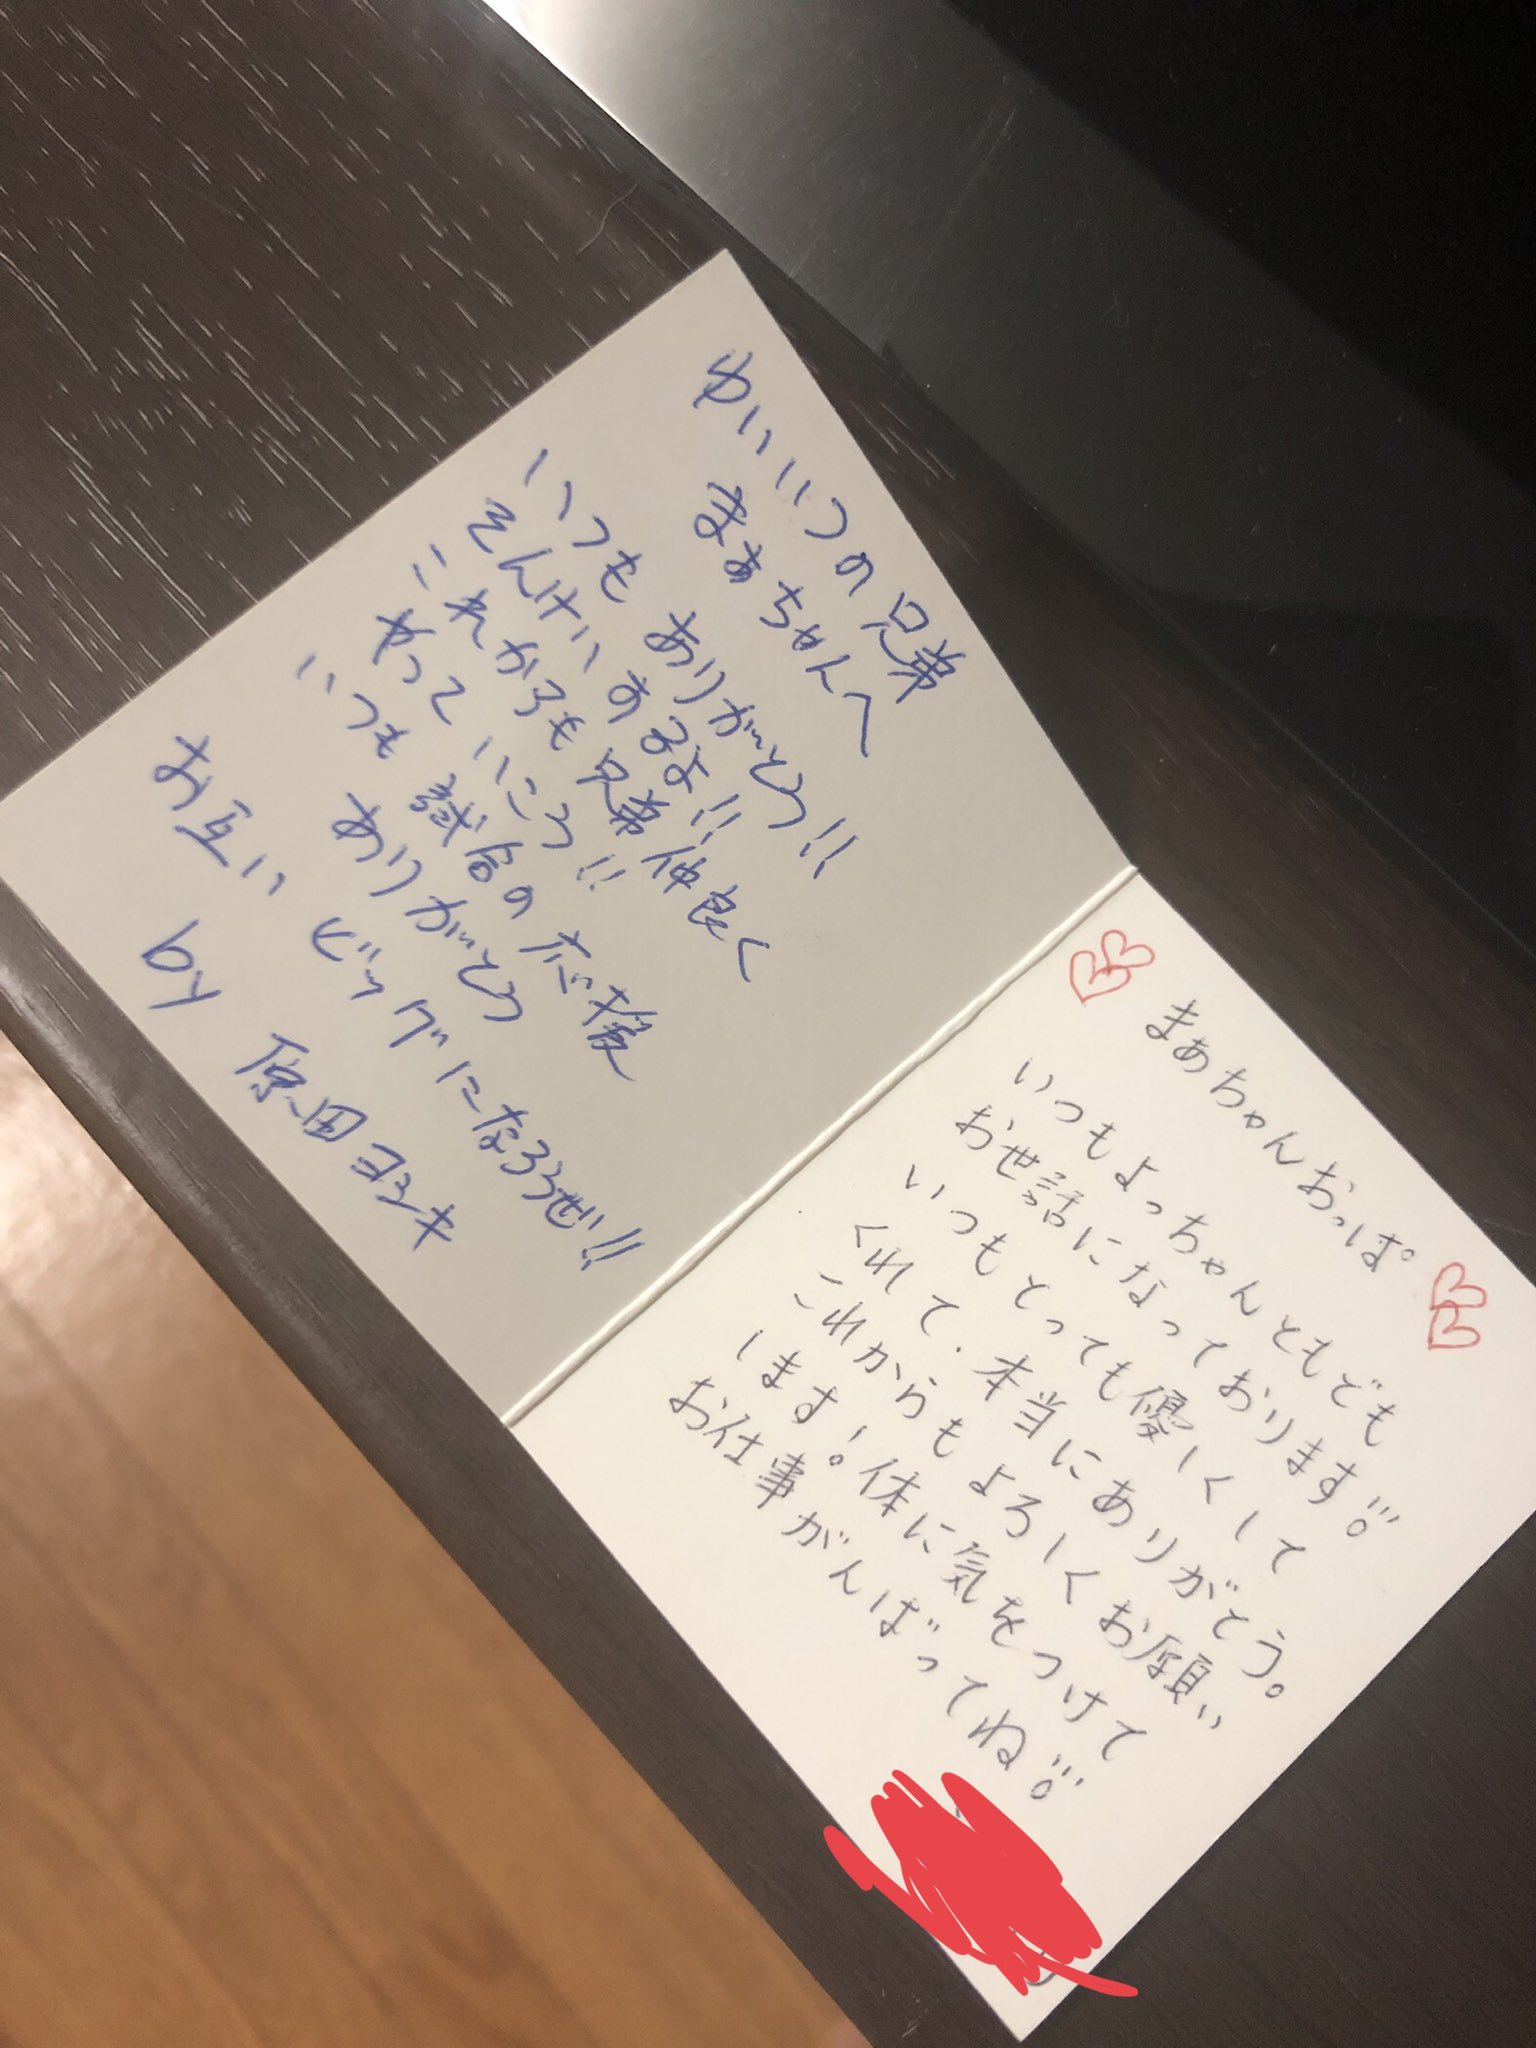 ゆいいつの兄弟
まぁちゃんへ
いつもありがとう!!
そんけいあるよ!!
これからも兄弟仲良く
やっていこう!!
いつも試合の応援
ありがとう
お互いビッグになろうぜ!!
by 原田ヨシキ
まぁちゃんおっぱ。
いつもよっちゃんともども
お世話になっております!!。
いつもとっても優しくして
くれて、本当にありがとう。
これからもよろしくお願い
します!体に気をつけて
お仕事がんばってね!!。